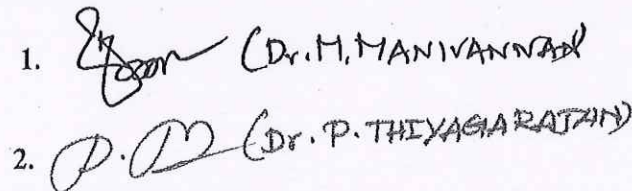 1. (Dr. M. MANIVANNAN)
2. (Dr. P. THIYAGARAJAN)